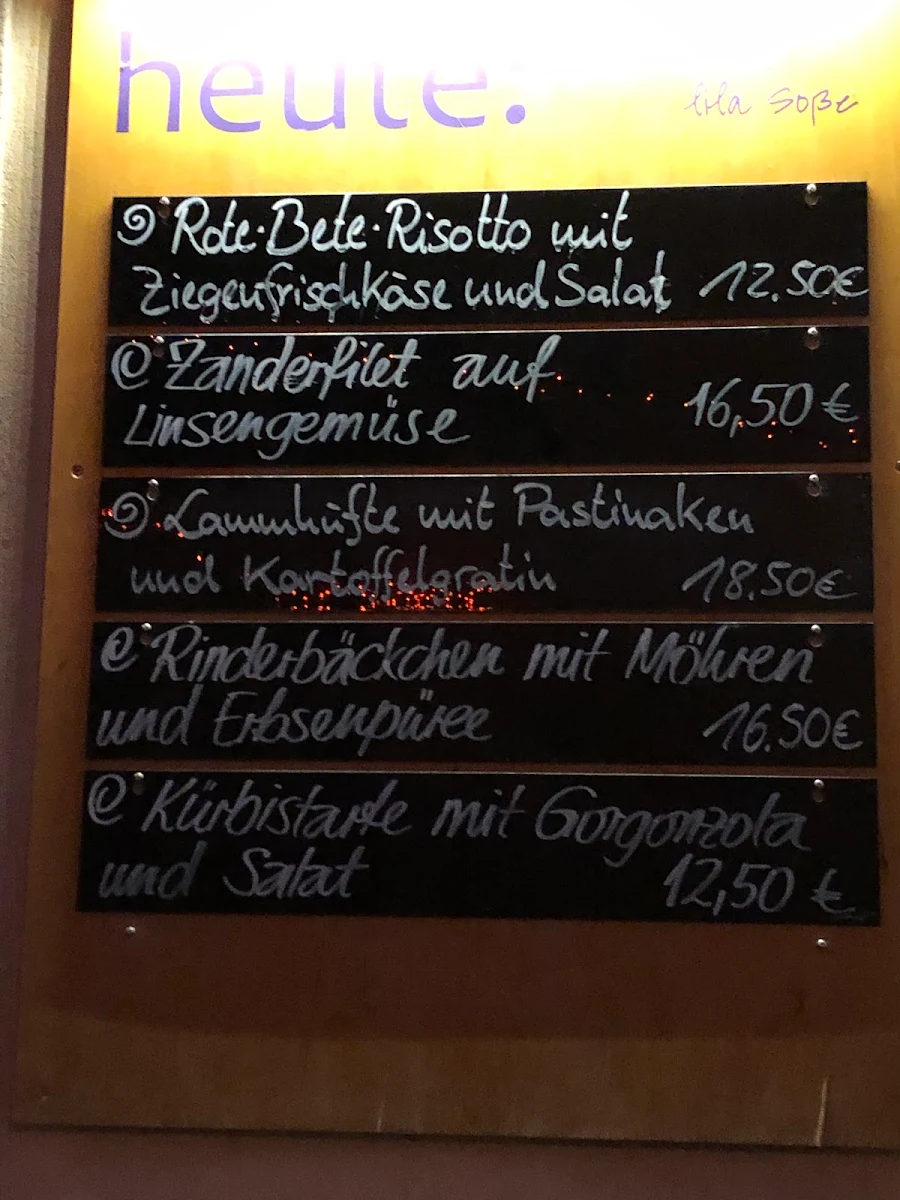 heute:
lila Soße
Rote-Bete-Risotto mit
Ziegenfrischkäse und Salat 12.50€
Zanderfilet auf
Linsengemüse 16,50 €
Lammhüfte mit Pastinaken
und Kartoffelgratin 18.50€
Rinderbäckchen mit Möhren
und Erbsenpüree 16.50€
Kürbistarte mit Gorgonzola
und Salat 12,50 €